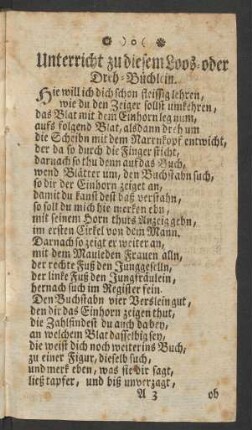 ) o (
Unterricht zu diesem Loos- oder
Dreh-Büchlein.
Hie will ich dich schon fleissig lehren,
wie du den Zeiger sollst umkehren,
das Blat mit dem Einhorn leg num,
aufs folgend Blat, alsdann dreh um
die Scheibn mit dem Narrnkopf entwicht,
der da so durch die Finger sticht,
darnach so thu denn auf das Buch,
wend Blätter um, den Buchstabn such,
so dir der Einhorn zeiget an,
damit du kanst dest daß verstahn,
so solt du mich hie merken ebn,
mit seinem Horn thuts Anzeig gebn,
im ersten Cirkel von dem Mann.
Darnach so zeigt er weiter an,
mit dem Mauleden Frauen alln,
der rechte Fuß den Junggeselln,
der linke Fuß den Jungfräulein,
hernach such im Register fein.
Den Buchstabn vier Verslein gut,
den dir das Einhorn zeigen thut,
die Zahl findest du auch dabey,
an welchem Blat dasselbig sey,
die weist dich noch weiter ins Buch,
zu einer Figur, dieselb such,
und merk eben, was sie dir sagt,
ließ tapfer, und biß unverzagt,
A 3 ob